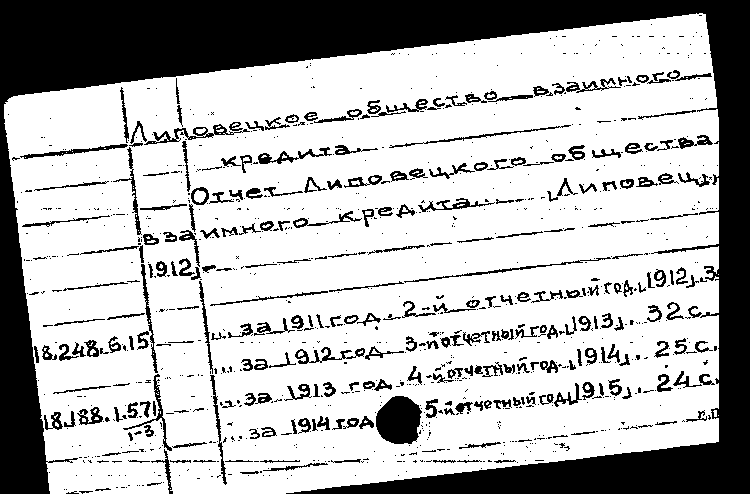 Липовецкое общество взаимного
кредита.
Отчет Липовецкого общества
взаимного кредита... [Липовец],
1912]-
... за 1911 год. 2-й отчетный год. [1912].
18.248.6.15 ... за 1912 год. 3-й отчетный год. [1913]. 32 с.
... за 1913 год. 4-й отчетный год. [1914]. 25 с.
18.188.1.571 ... за 1914 год 5-й отчетный год. [1915]. 24 с.
1-3